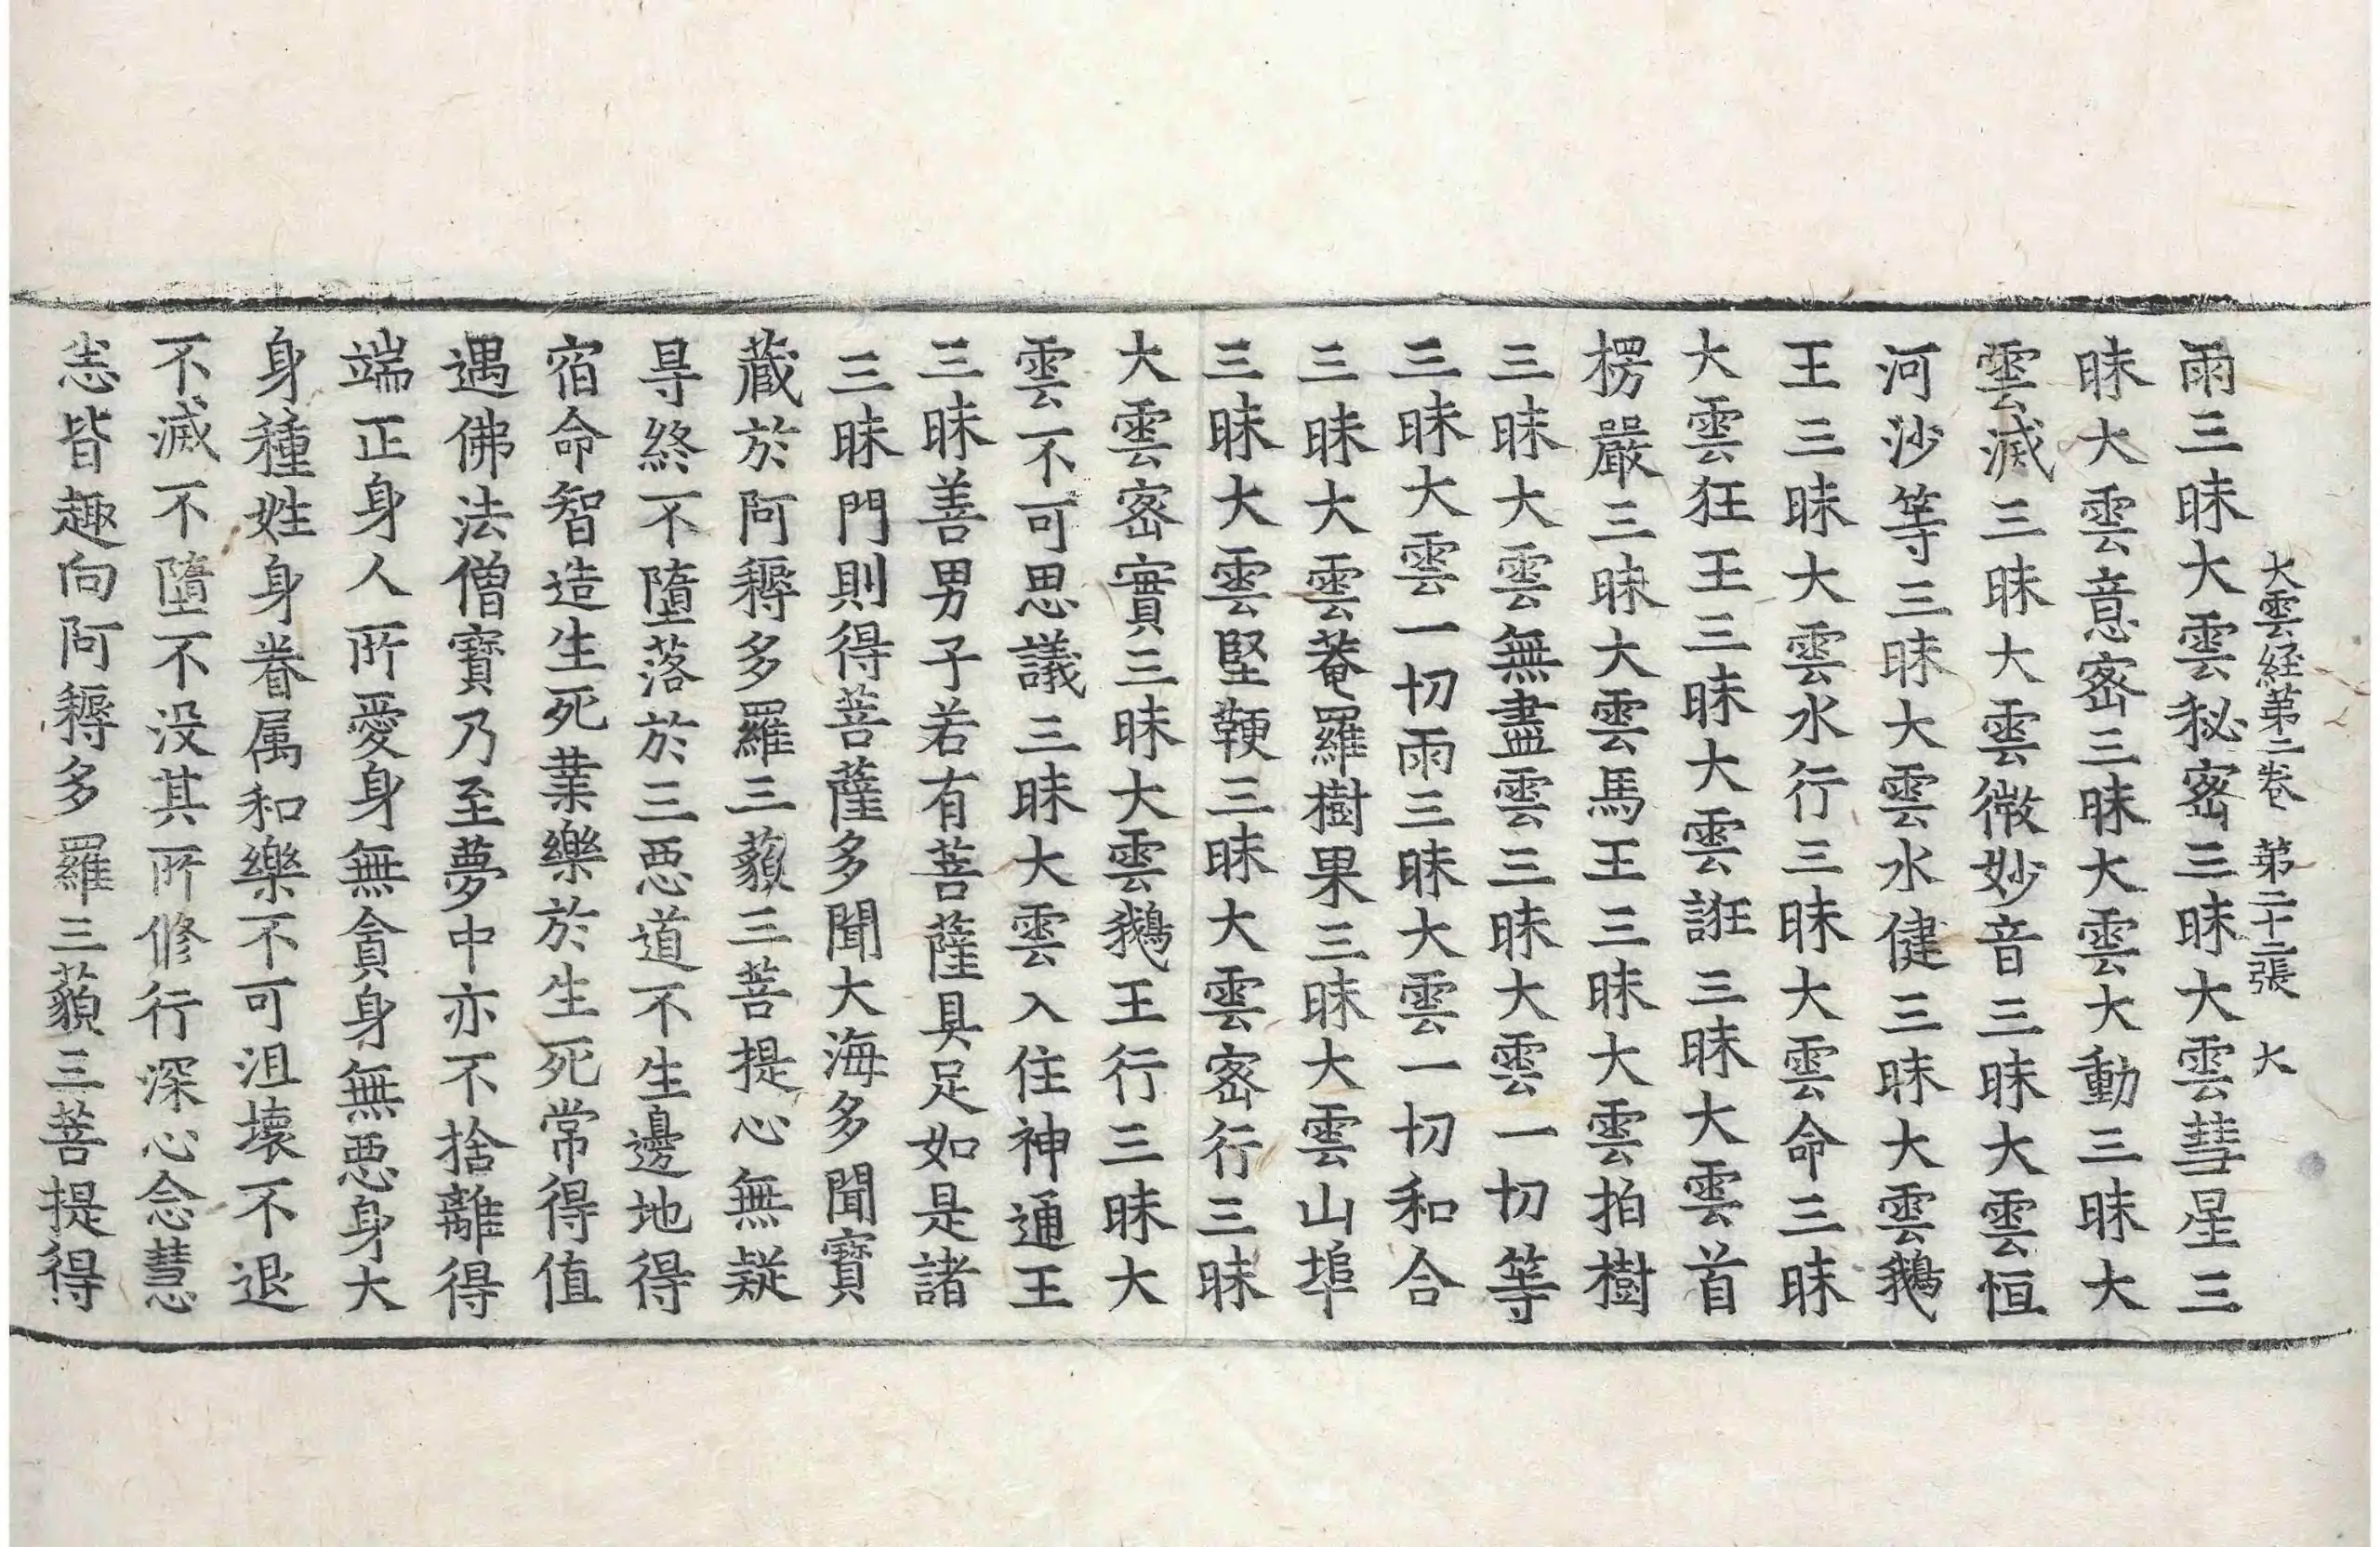 大雲経第二卷 第二十二張 大
雨三昧大雲秘密三昧大雲彗星三
昧大雲意密三昧大雲大動三昧大
雲滅三昧大雲微妙音三昧大雲恒
河沙等三昧大雲水健三昧大雲鵝
王三昧大雲水行三昧大雲命三昧
大雲狂王三昧大雲誑三昧大雲首
楞嚴三昧大雲馬王三昧大雲拍樹
三昧大雲無盡雲三昧大雲一切等
三昧大雲一切雨三昧大雲一切和合
三昧大雲菴羅樹果三昧大雲山埠
三昧大雲堅鞕三昧大雲密行三昧
大雲密實三昧大雲鵝王行三昧大
雲不可思議三昧大雲入住神通王
三昧善男子若有菩薩具足如是諸
三昧門則得菩薩多聞大海多聞寶
藏於阿耨多羅三藐三菩提心無疑
㝵終不墮落於三惡道不生邊地得
宿命智造生死業樂於生死常得值
遇佛法僧寶乃至夢中亦不捨離得
端正身人所愛身無貪身無惡身大
身種姓身眷属和樂不可沮壞不退
不滅不墮不没其所修行深心念慧
恚皆趣向阿耨多羅三藐三菩提得